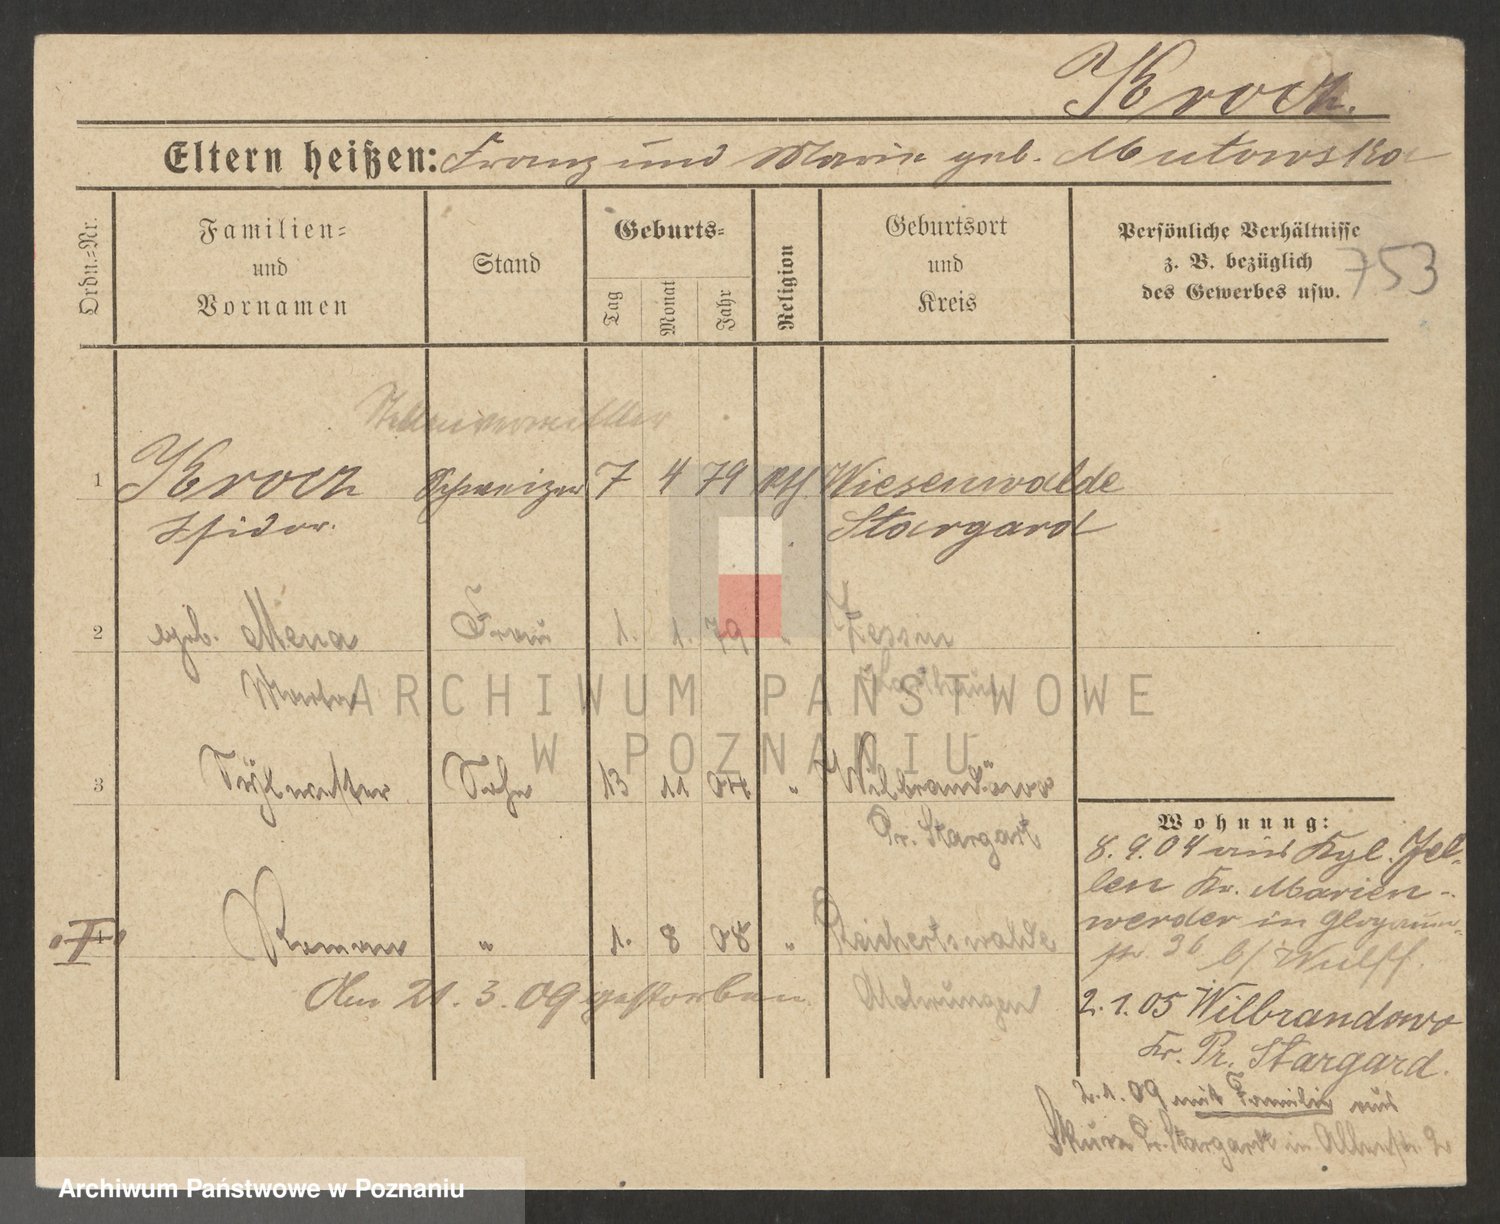 Krocz.
Eltern heißen: Franz und Marie geb. Mutowska
Ordn.-Nr.
Familien-
und
Vornamen
Stand
Geburts-
Tag
Monat
Jahr
Religion
Geburtsort
und
Kreis
Persönliche Verhältnisse
z. B. bezüglich
des Gewerbes usw.
753
Stellenvermittler
1 Krocz Schweizer 7 4 79 kth. Wiesenwalde
Isidor. Stargard
2 geb. Mena Frau 1. 1. 79 "
3 Sohn 13 11 04 " Wilbrandowo
Pr. Stargart
Roman " 1. 8 08 " Reichertswalde
Am 21.3.09 gestorben. Mohrungen
Wohnung:
8.9.04 aus Kgl. Jel-
len Kr. Marien-
werder in Glogauer-
str. 36 b/ Wulff.
2.1.05 Wilbrandowo
Kr. Pr. Stargard.
2.1.09 mit Familie aus
Skurz Pr. Stargardt in
ARCHIWUM PAŃSTWOWE
W POZNANIU
Archiwum Państwowe w Poznaniu